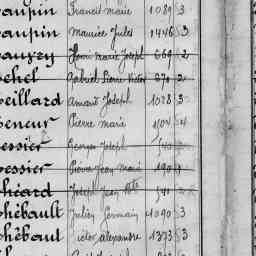 aupin Francis marie 1089 3
aupin Maurice Jules 1446 3
auvey Henri marie Joseph 669 2
chel Gabriel Pierre Victor 870 2
eillard Amand Joseph 1028 3
eneur Pierre marie 1104 4
essier Georges Joseph
essier Pierre Jean Marie 190
héard Joseph Jean
hébault Julien Germain 1090 3
hébaut Victor alexandre 1373 3